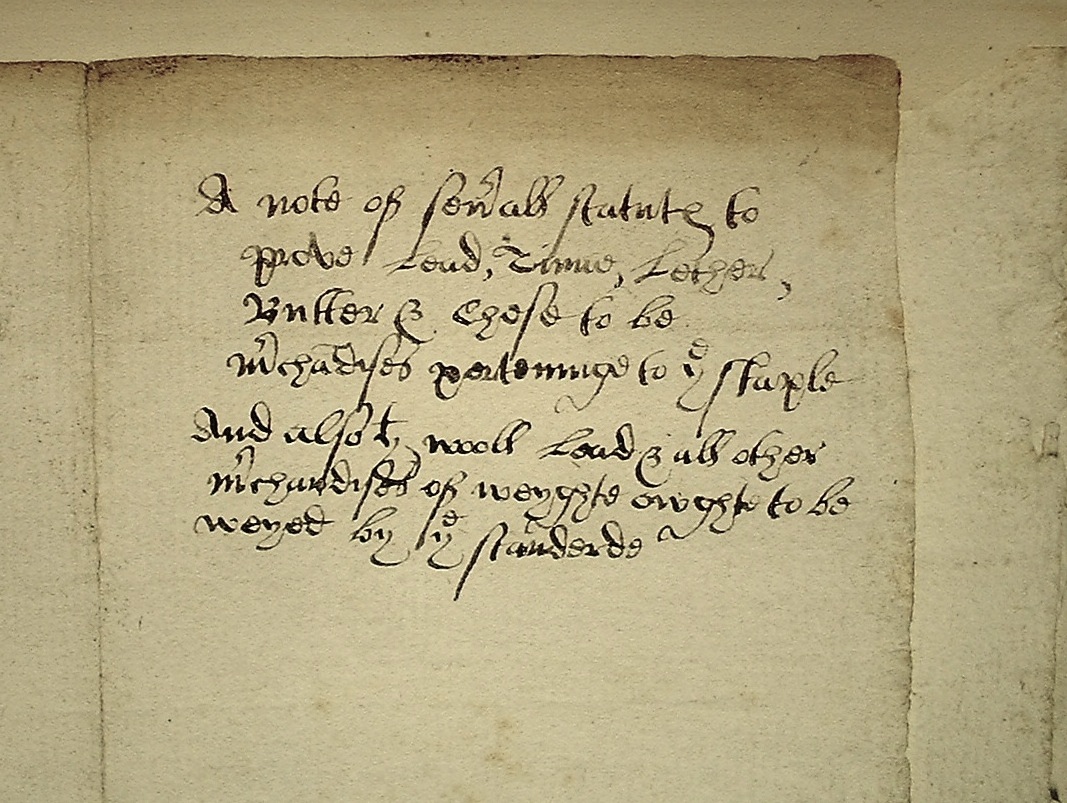 A note of seu'all statutes to
prove Lead, Tinne, Lether,
Butter & Chese to be
m'chādises perteininge to yͤ staple
And also yt wooll Lead & all other
m'chandises of weyghte owghte to be
weyed by yͤ stānderde